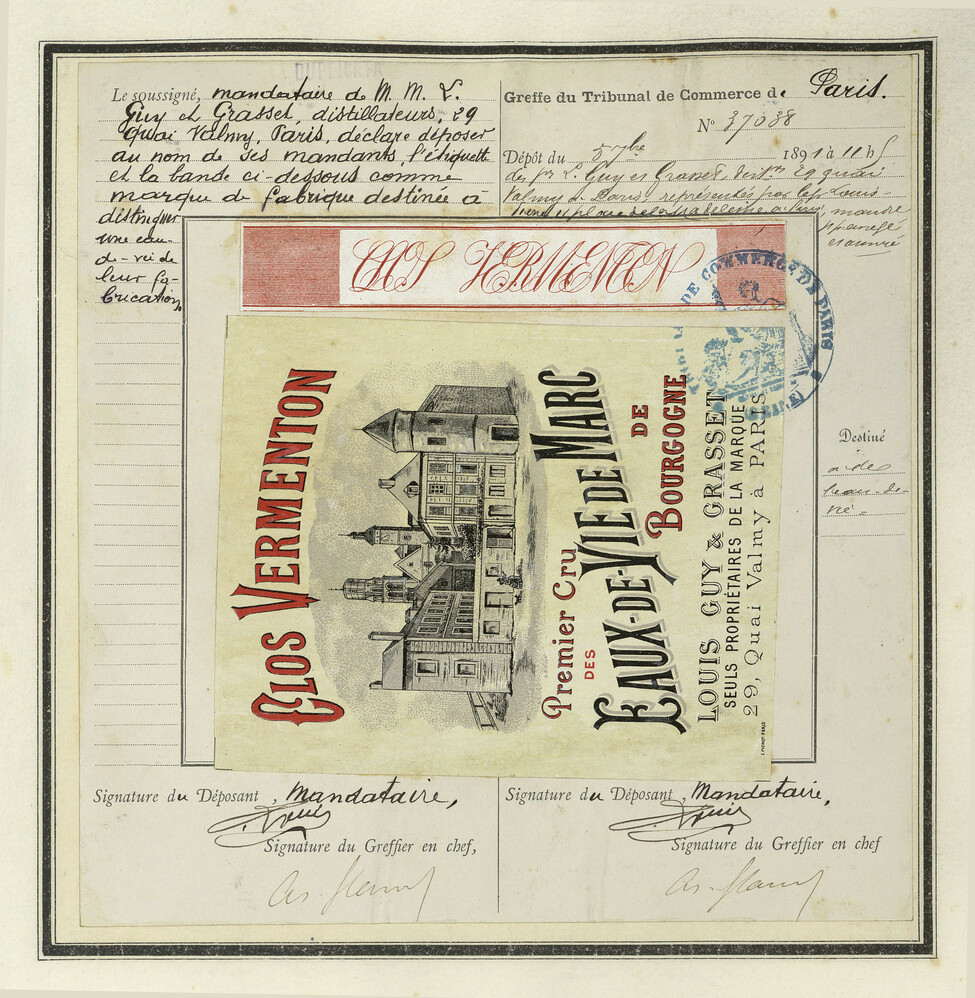 DUPLICATA
Le soussigné, mandataire de M. M. L.
Guy et Grasset, distillateurs, 29
quai Valmy, Paris, déclare déposer
au nom de ses mandants, l'étiquette
et la bande ci-dessous comme
marque de fabrique destinée à
distinguer
une eau-
de-vie de
leur fa-
brication,
Greffe du Tribunal de Commerce de Paris.
N° 37038
Dépôt du 1891 à 11 h
des L. Guy et Grasset, 29 quai
Valmy à Paris, représentés par Louis
CLOS VERMENTON
DE COMMERCE DE PARIS
CLOS VERMENTON
Premier Cru
DES
EAUX-DE-VIE DE MARC
DE
BOURGOGNE
LOUIS GUY & GRASSET
SEULS PROPRIÉTAIRES DE LA MARQUE
29, Quai Valmy à PARIS
Destiné
à des
eaux-de-
vie.
Signature du Déposant, Mandataire,
Signature du Greffier en chef,
Signature du Déposant, Mandataire,
Signature du Greffier en chef